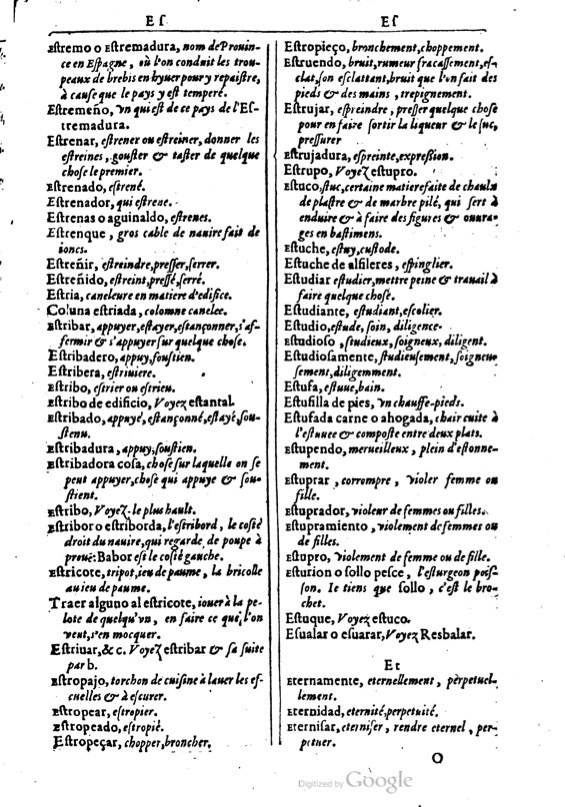 Eſ
Eſtremo o Eſtremadura, nom de Prouin-
ce en Eſpagne, où l'on conduit les trou-
peaux de brebis en hyuer pour y repaiſtre,
à cauſe que le pays y eſt temperé.
Eſtremeño, vn qui eſt de ce pays de l'Eſ-
tremadura.
Eſtrenar, eſtrener ou eſtreiner, donner les
eſtreines, gouſter & taſter de quelque
choſe le premier.
Eſtrenado, eſtrené.
Eſtrenador, qui eſtrene.
Eſtrenas o aguinaldo, eſtrenes.
Eſtrenque, gros cable de nauire fait de
ioncs.
Eſtreñir, eſtreindre, preſſer, ſerrer.
Eſtreñido, eſtreint, preſſé, ſerré.
Eſtria, caneleure en matiere d'edifice.
Coluna eſtriada, colomne canelee.
Eſtribar, appuyer, eſtayer, eſtançonner, s'aſ-
fermir & s'appuyer ſur quelque choſe.
Eſtribadero, appuy, ſouſtien.
Eſtribera, eſtriuiere.
Eſtribo, eſtrier ou eſtrieu.
Eſtribo de edificio, Voyez eſtantal.
Eſtribado, appuyé, eſtançonné, eſtayé, ſou-
ſtenu.
Eſtribadura, appuy, ſouſtien.
Eſtribadora coſa, choſe ſur laquelle on ſe
peut appuyer, choſe qui appuye & ſou-
ſtient.
Eſtribo, Voyez le plus hault.
Eſtribor o eſtriborda, l'eſtribord, le coſté
droit du nauire, qui regarde de poupe à
prouë: Babor eſt le coſté gauche.
Eſtricote, tripot, ieu de paume, la bricolle
au ieu de paume.
Traer alguno al eſtricote, iouer à la pe-
lote de quelqu'vn, en faire ce que l'on
veut, s'en mocquer.
Eſtriuar, & c. Voyez eſtribar & ſa ſuite
par b.
Eſtropajo, torchon de cuiſine à lauer les eſ-
cuelles & à eſcurer.
Eſtropear, eſtropier.
Eſtropeado, eſtropié.
Eſtropeçar, chopper, broncher.
Eſ
Eſtropieço, bronchement, choppement.
Eſtruendo, bruit, rumeur fracaſſement, eſ-
clat, ſon eſclattant, bruit que l'on fait des
pieds & des mains, trepignement.
Eſtrujar, eſpreindre, preſſer quelque choſe
pour en faire ſortir la liqueur & le ſuc,
preſſurer
Eſtrujadura, eſpreinte, expreßion.
Eſtrupo, Voyez eſtupro.
Eſtuco, ſtuc, certaine matiere faite de chaulx
de plaſtre & de marbre pilé, qui ſert à
enduire & à faire des figures & ouura-
ges en baſtimens.
Eſtuche, eſtuy, cuſtode.
Eſtuche de alfileres, eſpinglier.
Eſtudiar eſtudier, mettre peine & trauail à
faire quelque choſe.
Eſtudiante, eſtudiant, eſcolier.
Eſtudio, eſtude, ſoin, diligence.
Eſtudioſo, ſtudieux, ſoigneux, diligent.
Eſtudioſamente, ſtudieuſement, ſoigneu-
ſement, diligemment.
Eſtufa, eſtuue, bain.
Eſtufilla de pies, vn chauffe-pieds.
Eſtufada carne o ahogada, chair cuite à
l'eſtuuee & compoſte entre deux plats.
Eſtupendo, merueilleux, plein d'eſtonne-
ment.
Eſtuprar, corrompre, violer femme ou
fille.
Eſtuprador, violeur de femmes ou filles.
Eſtupramiento, violement de femmes ou
de filles.
Eſtupro, violement de femme ou de fille.
Eſturion o ſollo peſce, l'eſturgeon poiſ-
ſon. Ie tiens que ſollo, c'eſt le bro-
chet.
Eſtuque, Voyez eſtuco.
Eſualar o eſuarar, Voyez Resbalar.
Et
Eternamente, eternellement, pèrpetuel-
lement.
Eternidad, eternité, perpetuité.
Eterniſar, eterniſer, rendre eternel, per-
petuer.
O
Digitized by Google